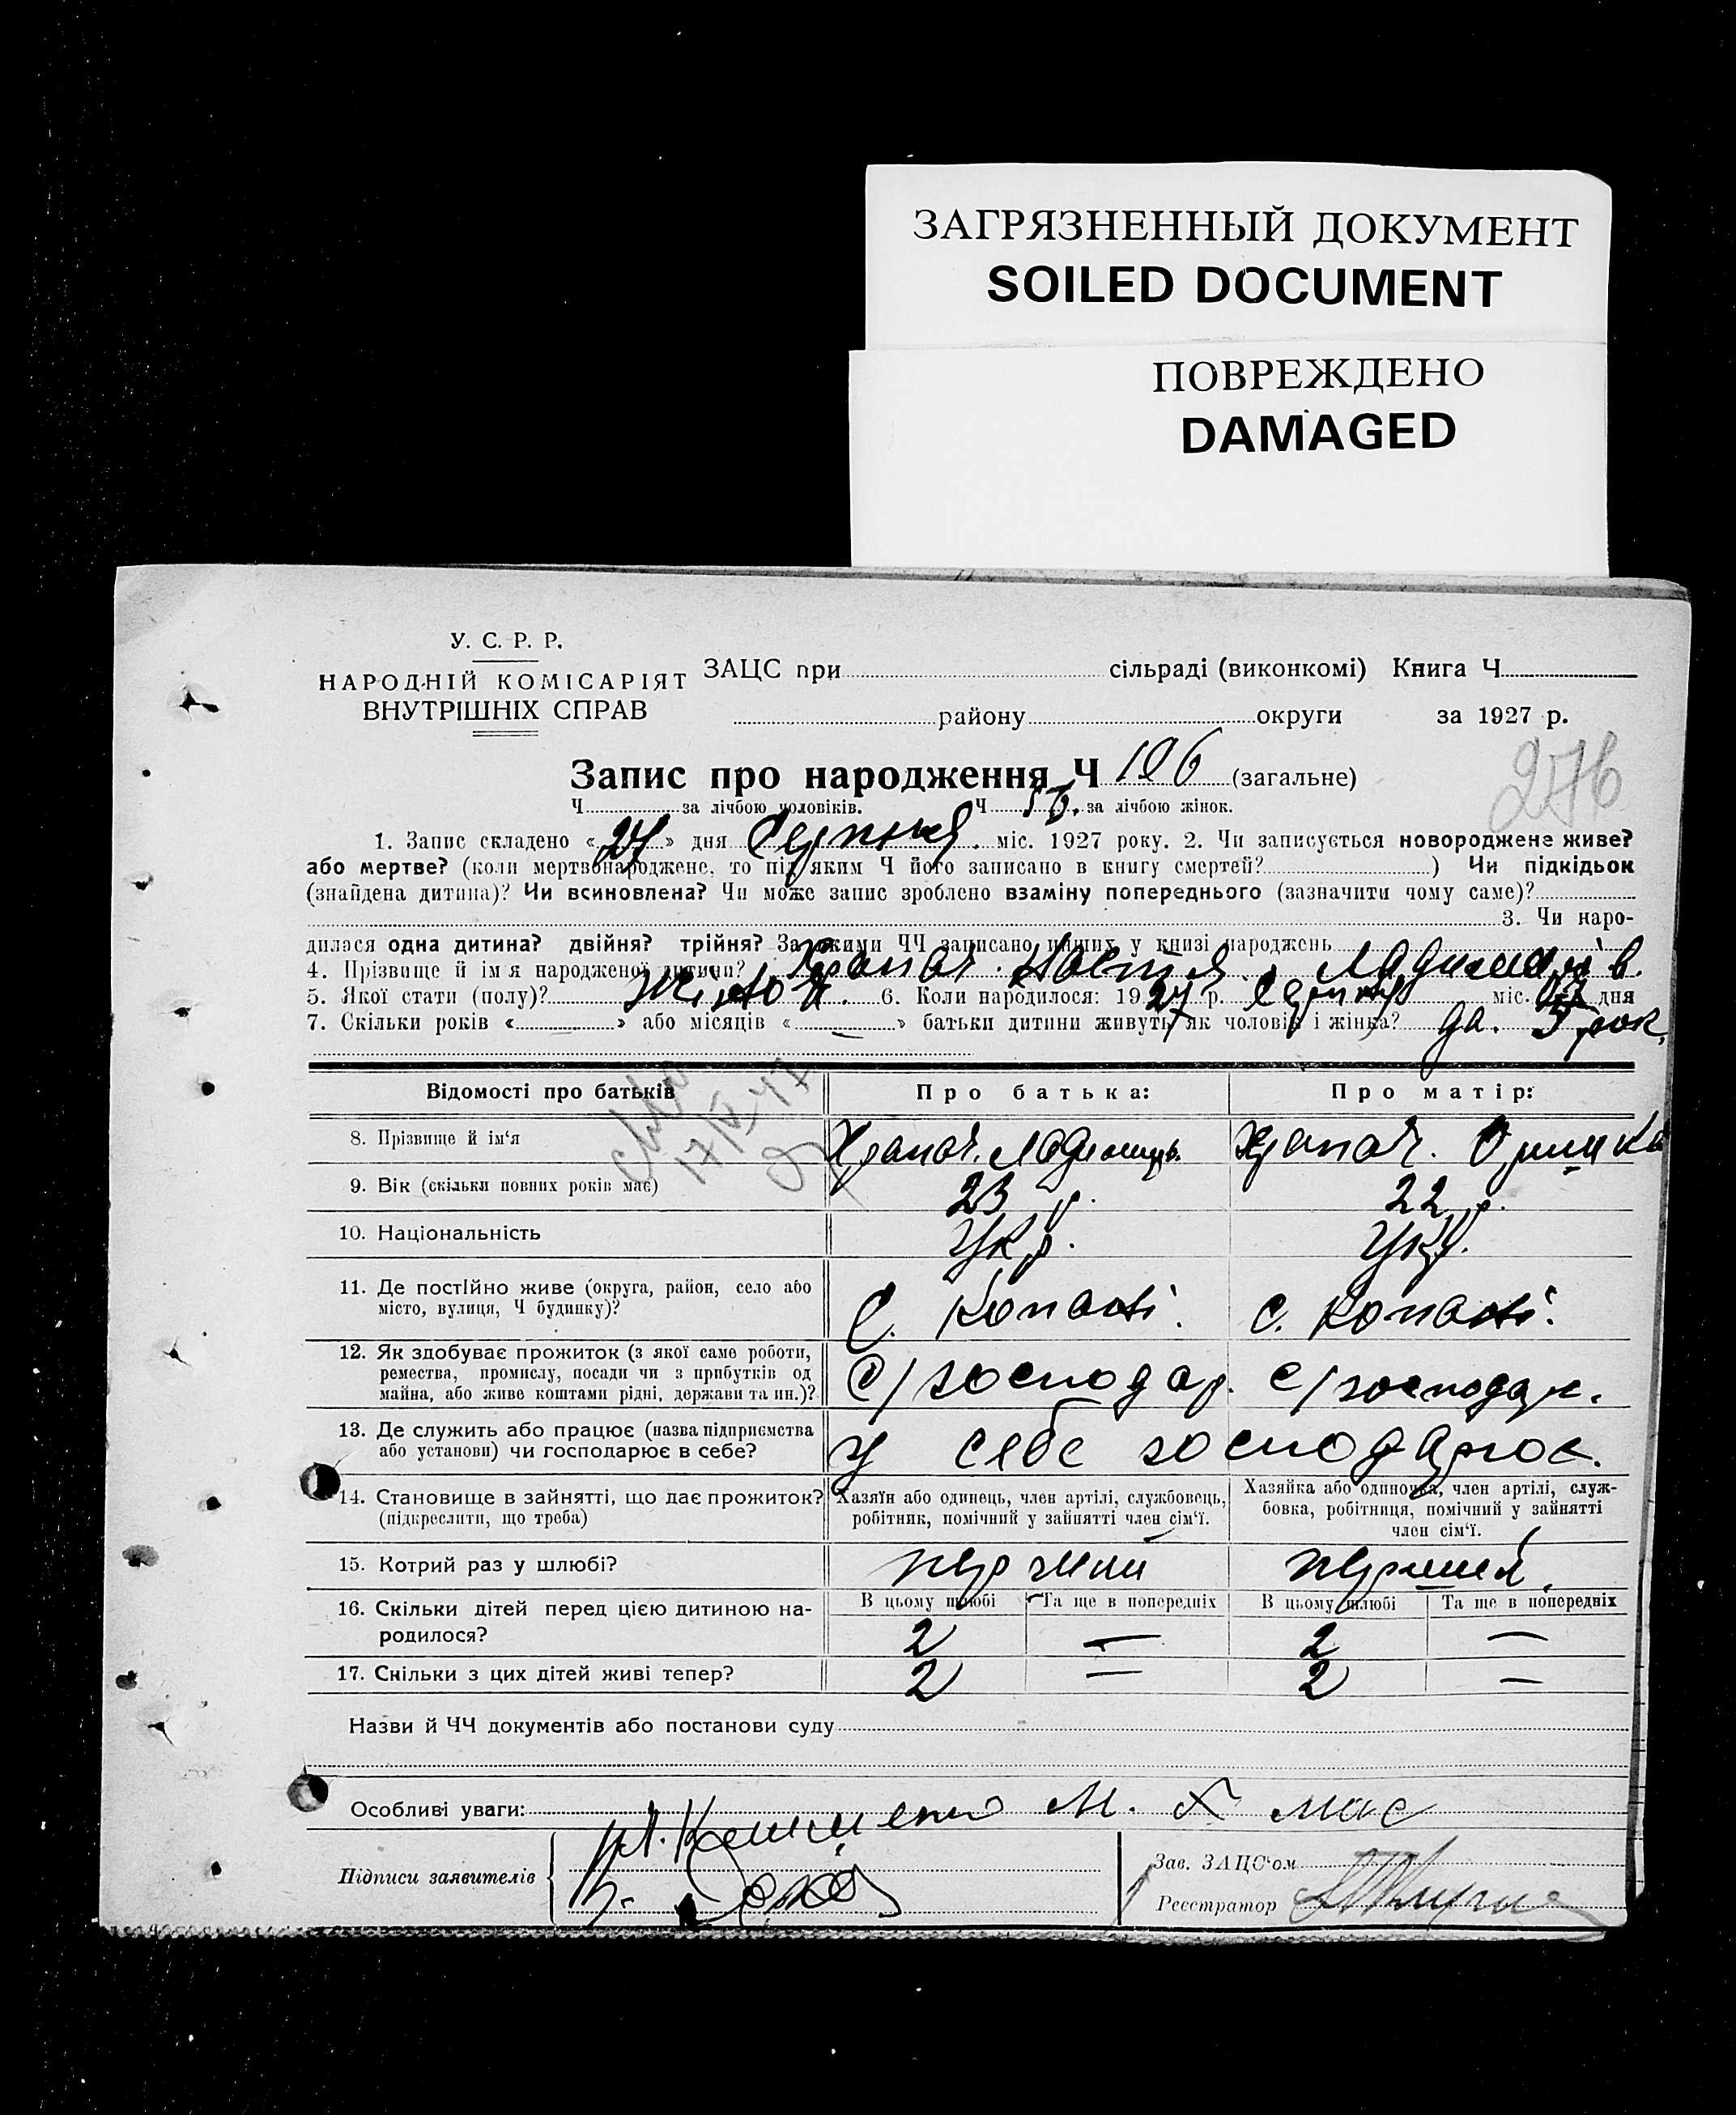 ЗАГРЯЗНЕННЫЙ ДОКУМЕНТ
SOILED DOCUMENT
ПОВРЕЖДЕНО
DAMAGED
У. С. Р. Р.
НАРОДНІЙ КОМІСАРІЯТ
ВНУТРІШНІХ СПРАВ
ЗАЦС при сільраді (виконкомі) Книга Ч
району округи за 1927 р.
276
Запис про народження Ч 106 (загальне)
Ч за лічбою чоловіків. Ч за лічбою жінок.
1. Запис складено « 27 » дня Серпня міс. 1927 року. 2. Чи записується новороджене живе?
або мертве? (коли мертвонароджене, то під яким Ч його записано в книгу смертей? ) Чи підкідьок
(знайдена дитина)? Чи всиновлена? Чи може запис зроблено взаміну попереднього (зазначити чому саме)?
3. Чи наро-
дилася одна дитина? двійня? трійня? За якими ЧЧ записано инших у книзі народжень
4. Прізвище й ім'я народженої дитини? Храпач Настя
5. Якої стати (полу)? жіноч. 6. Коли народилося: 1927 р. Серпня міс. дня
7. Скільки років « » або місяців « — » батьки дитини живуть як чоловік і жінка? да. 5 рок.
17/VI 47
Відомості про батьків Про батька: Про матір:
8. Прізвище й ім'я Храпач. Храпач.
9. Вік (скільки повних років має) 23 р. 22 р.
10. Національність Укр. Укр.
11. Де постійно живе (округа, район, село або
місто, вулиця, Ч будинку)? С. Копані. с. Копані.
12. Як здобуває прожиток (з якої саме роботи,
ремества, промислу, посади чи з прибутків од
майна, або живе коштами рідні, держави та ин.)? С/господар. с/господар.
13. Де служить або працює (назва підприємства
або установи) чи господарює в себе? у себе господарює.
14. Становище в зайнятті, що дає прожиток?
(підкреслити, що треба)
Хазяїн або одинець, член артілі, службовець,
робітник, помічний у зайнятті член сім'ї.
Хазяйка або одиночка, член артілі, служ-
бовка, робітниця, помічний у зайнятті
член сім'ї.
15. Котрий раз у шлюбі? перший перший.
В цьому шлюбі Та ще в попередніх В цьому шлюбі Та ще в попередніх
16. Скільки дітей перед цією дитиною на-
родилося? 2 — 2 —
17. Скільки з цих дітей живі тепер? 2 — 2 —
Назви й ЧЧ документів або постанови суду
Особливі уваги:
Підписи заявителів
Зав. ЗАЦС'ом
Реєстратор